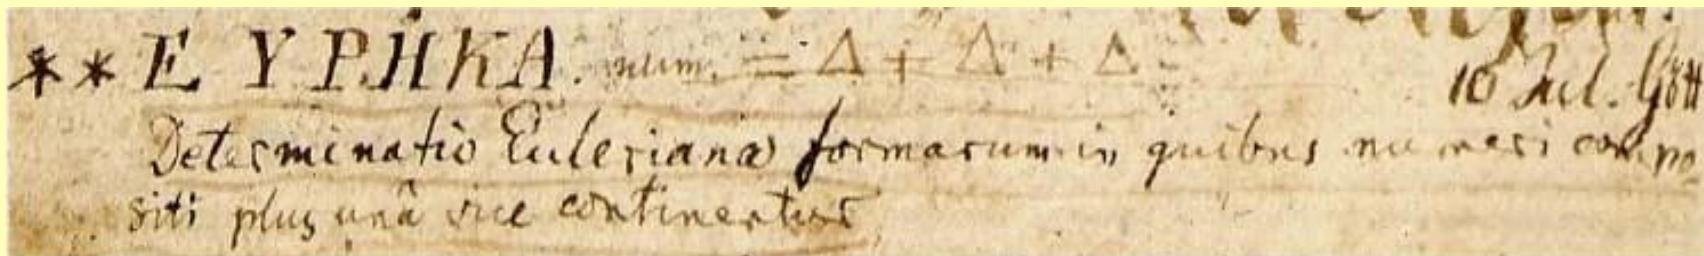 ** ΕΥΡΗΚΑ. num. = Δ + Δ + Δ. 10 Jul. Gött
Determinatio Euleriana formarum in quibus numeri compo-
siti plus unâ vice continentur